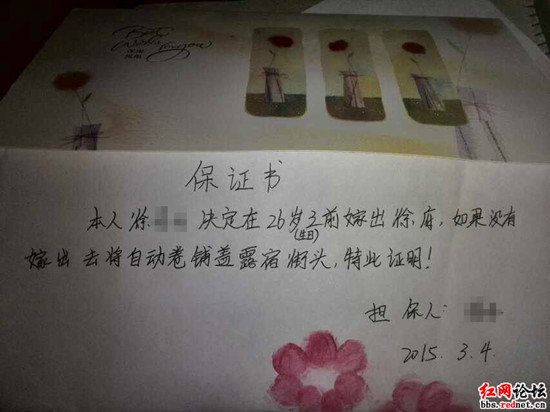 Best
Wishes
For you
保证书
本人徐 决定在26岁之前嫁出徐府,如果没有
(生日)
嫁出去将自动卷铺盖露宿街头,特此证明!
担保人:
2015.3.4.
红网论坛
bbs.rednet.cn